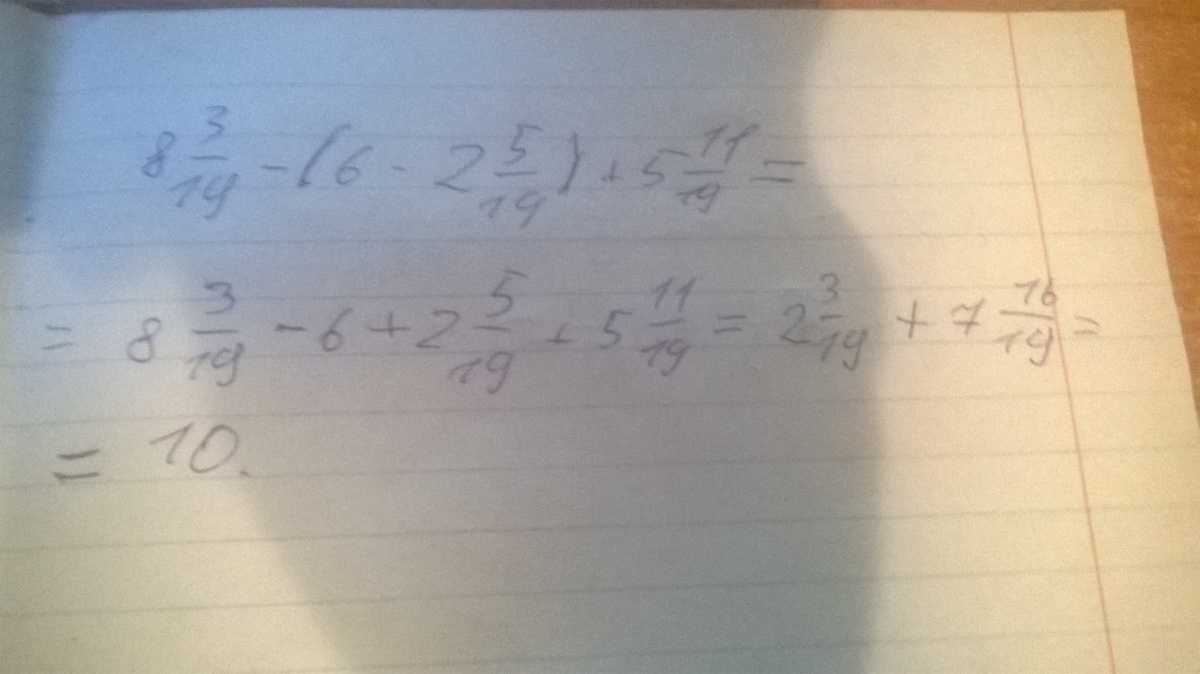 8 3/19 - (6 - 2 5/19) + 5 11/19 =
= 8 3/19 - 6 + 2 5/19 + 5 11/19 = 2 3/19 + 7 16/19 =
= 10.